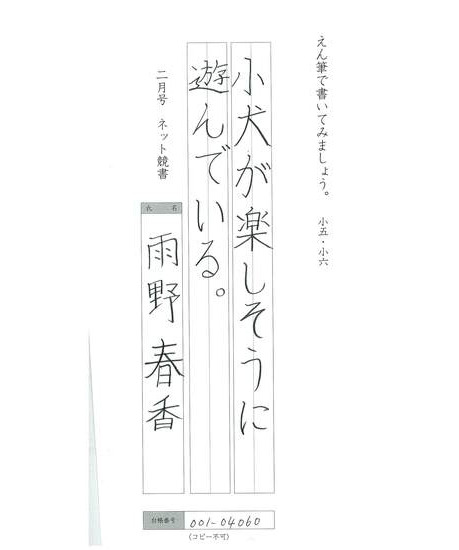 えん筆で書いてみましょう。 小五・小六
小犬が楽しそうに
遊んでいる。
二月号 ネット競書
氏名
雨野春香
台帳番号 001-04060
(コピー不可)